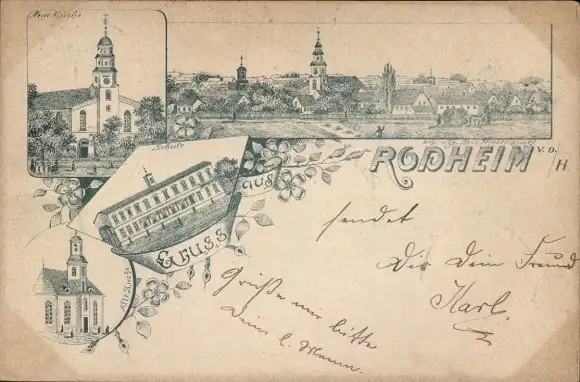 Neue Kirche
Schule
Gruss
aus
RODHEIM v. d. H.
Alte Kirche
sendet
Dir Dein Freund
Karl.
Grüße mir bitte
Deine l. Mama.